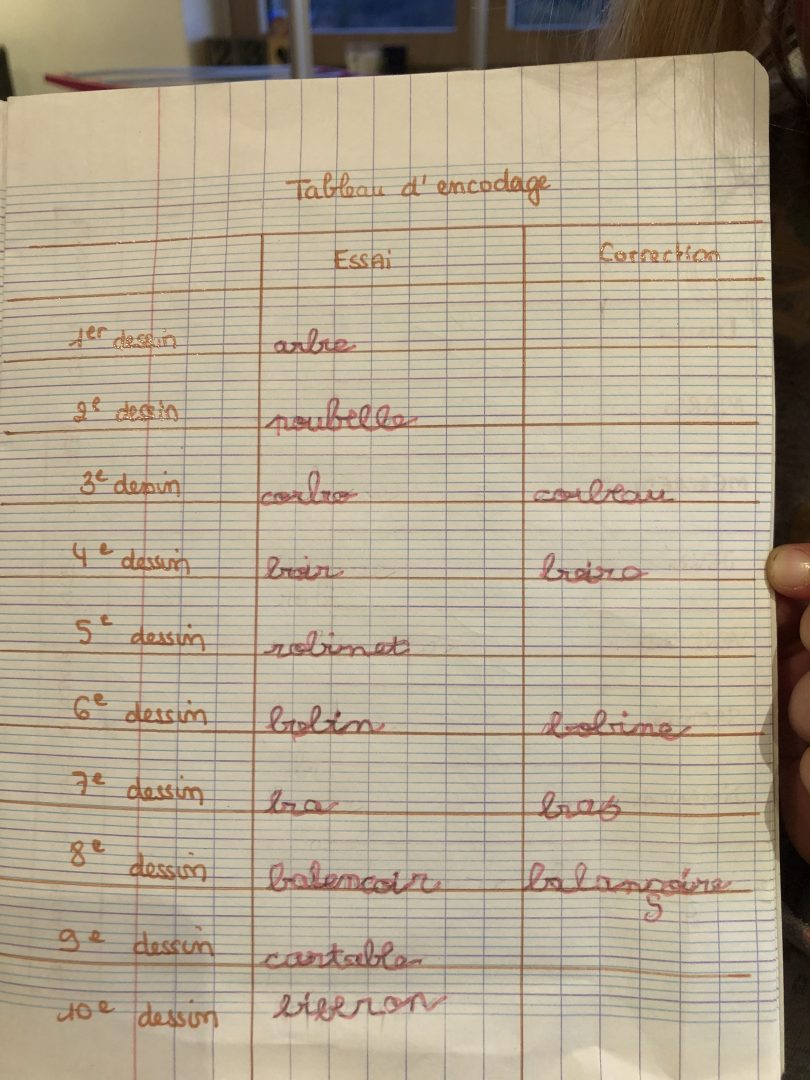 Tableau d'encodage
Essai Correction
1er dessin arbre
2e dessin poubelle
3e dessin corbo corbeau
4e dessin boir boire
5e dessin robinet
6e dessin bobin bobine
7e dessin bra bras
8e dessin balencoir balançoire
9e dessin cartable
10e dessin biberon